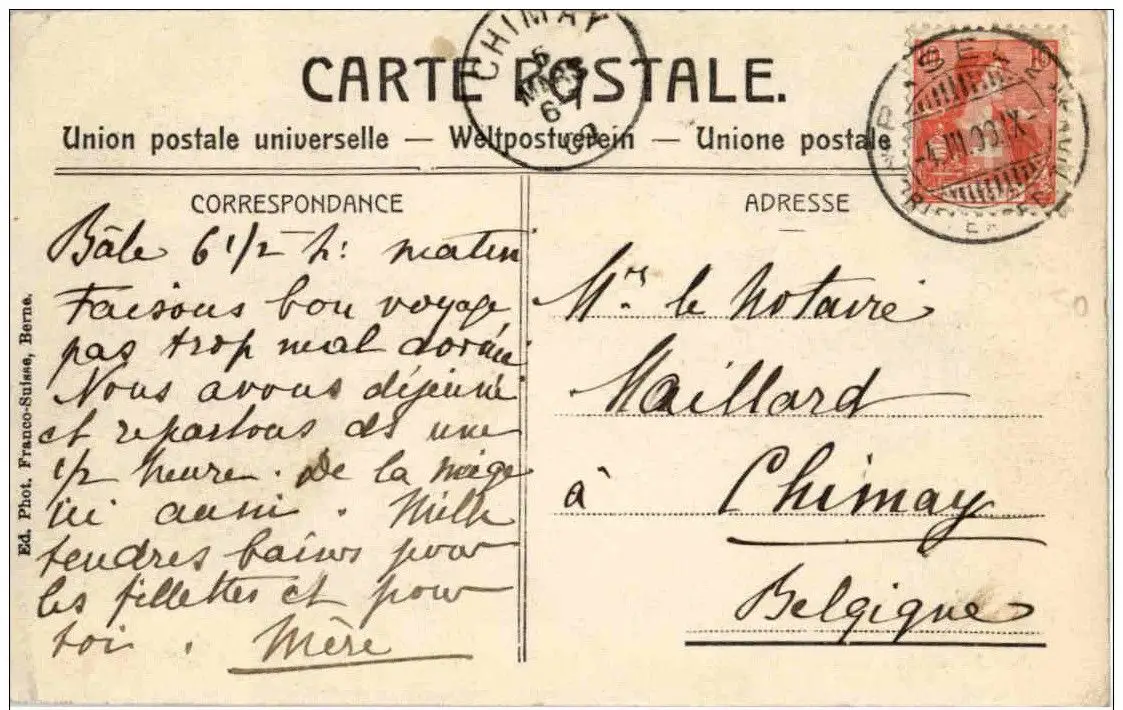 CARTE POSTALE.
Union postale universelle — Weltpostverein — Unione postale
CHIMAY
6
MARS
6-7
09
BASEL
-4.III.09.IX-
10
CORRESPONDANCE
Bâle 6 1/2 h: matin
Faisons bon voyage
pas trop mal dormi
Nous avons déjeuné
et repartons ds une
1/2 heure. De la neige
ici aussi. Mille
tendres baisers pour
les fillettes et pour
toi. Mère
ADRESSE
le Notaire
Maillard
à Chimay
Belgique
Ed. Phot. Franco-Suisse, Berne.
50